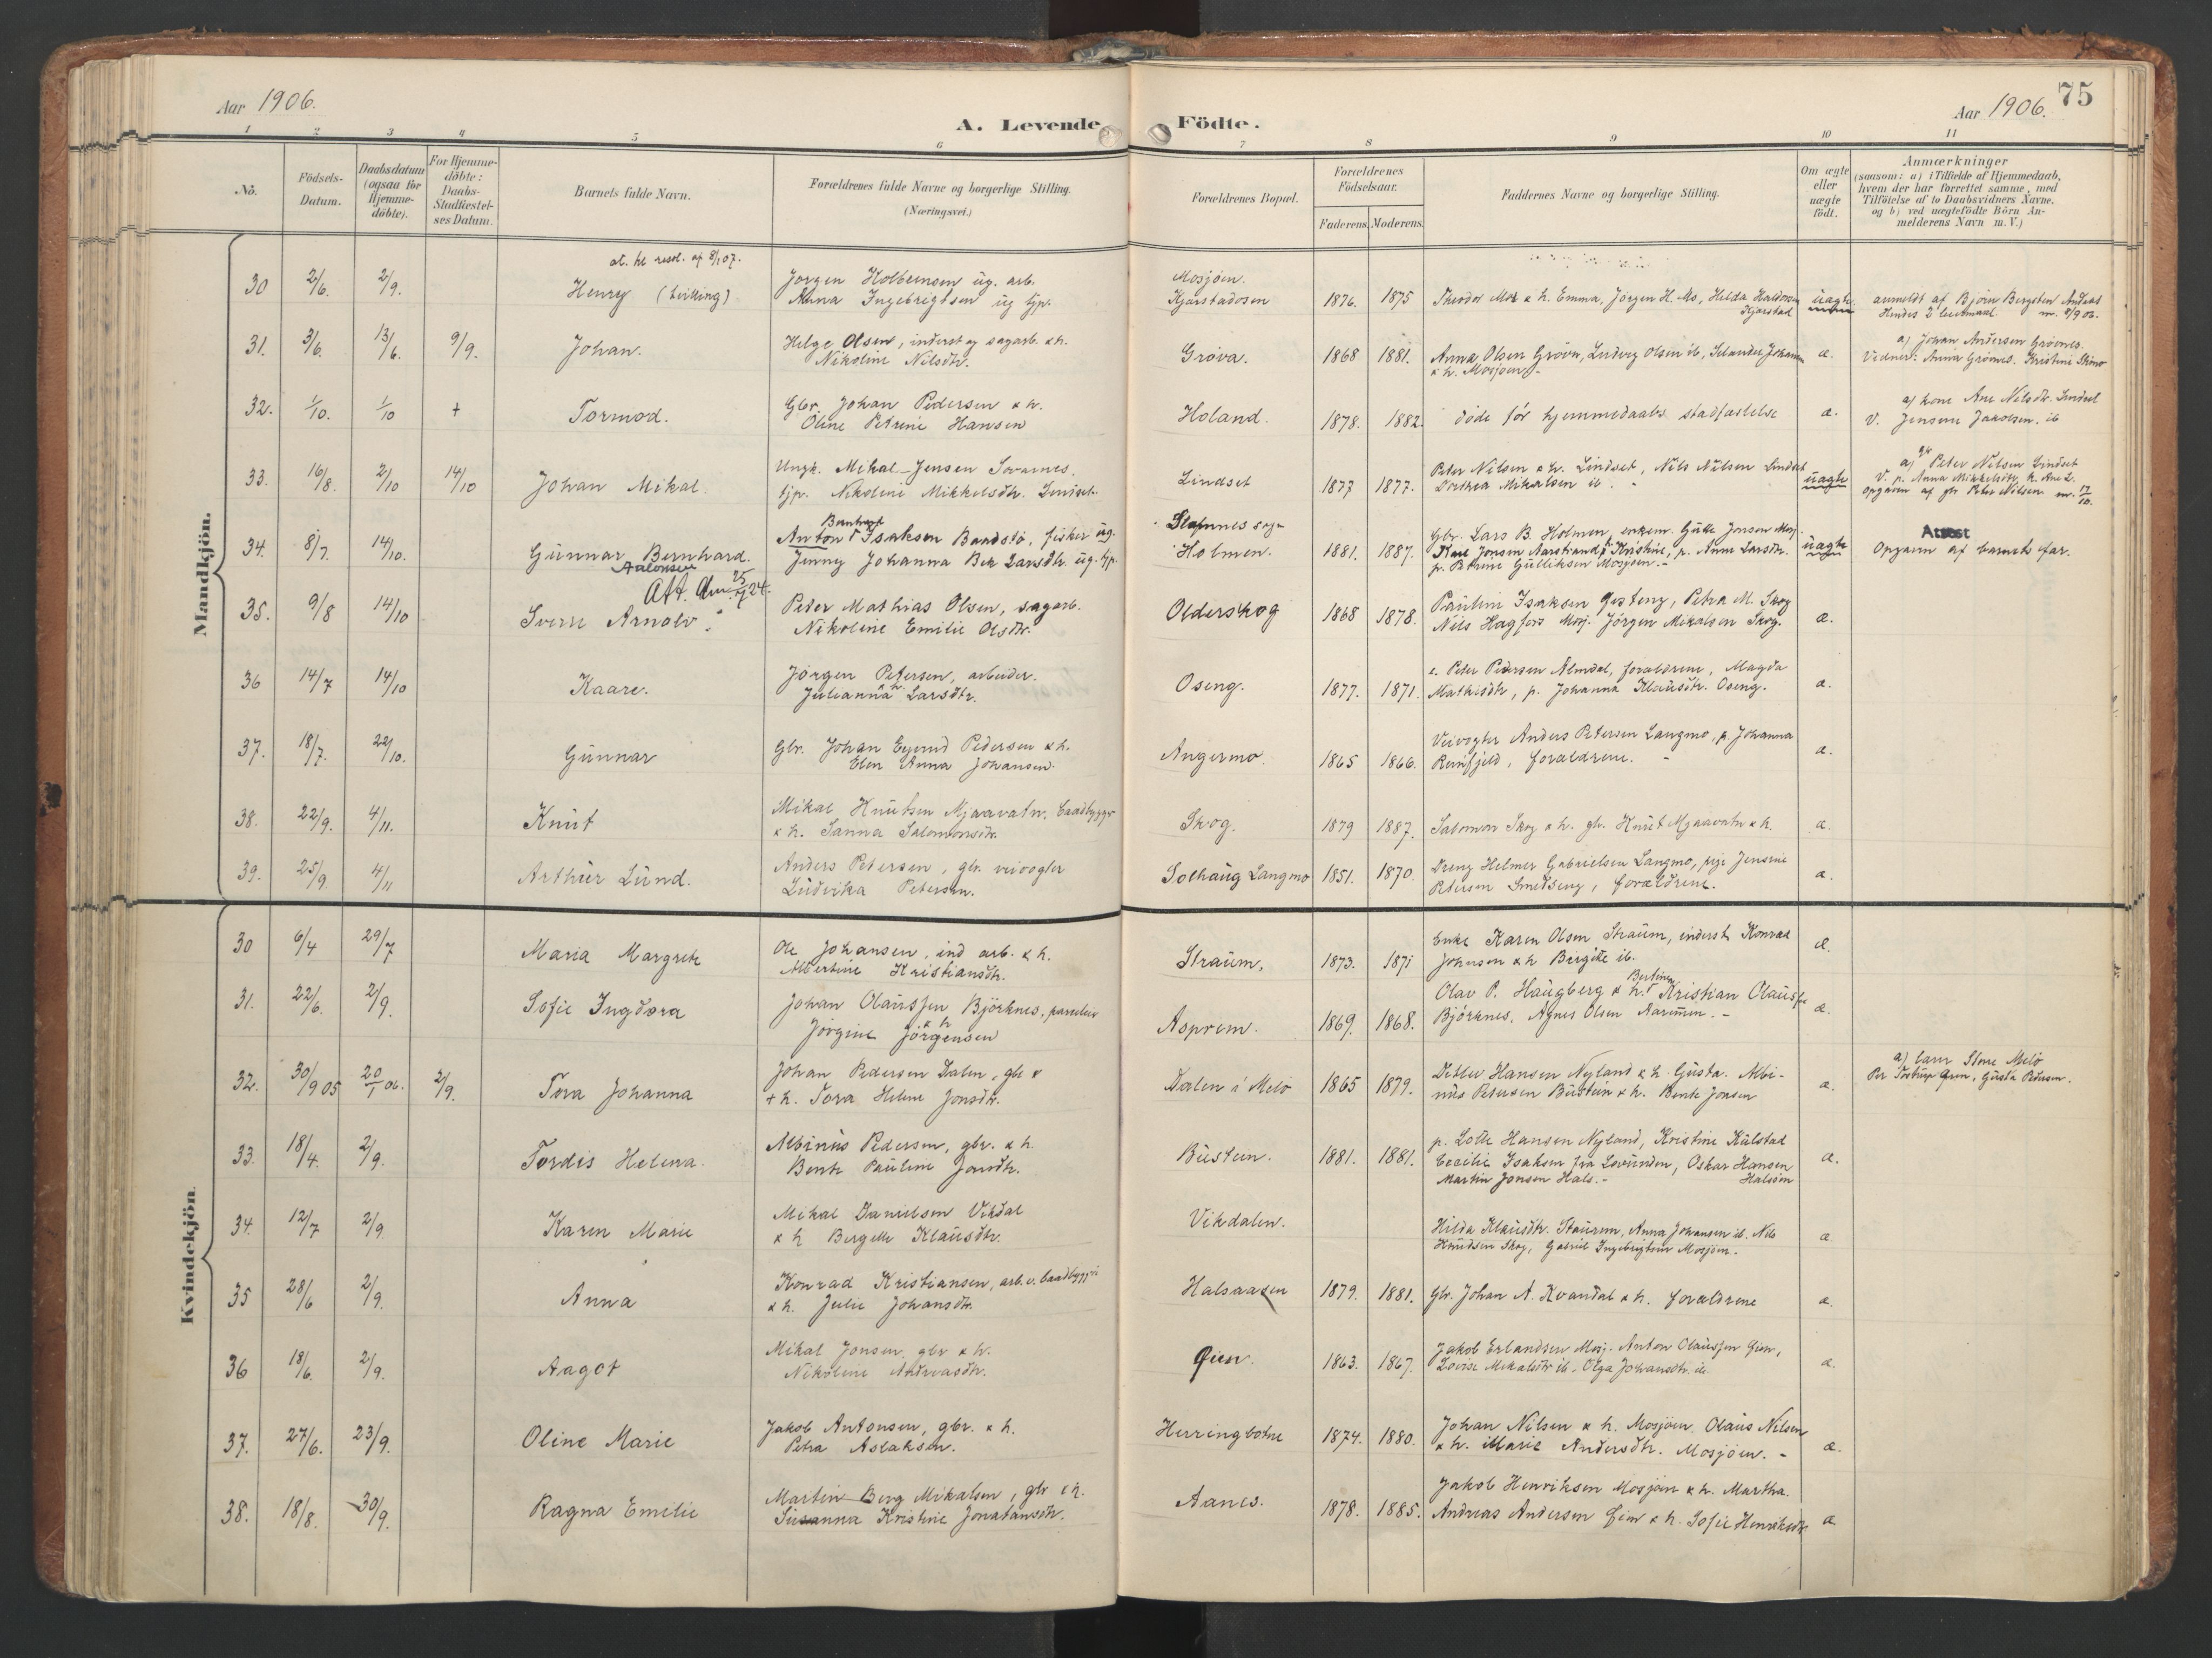 Aar 1906.
A. Levende
Födte.
Aar 1906.
75
1 2 3 4 5 6 7 8 9 10 11
Nö.
Födsels-
Datum.
Daabsdatum
(ogsaa for
Hjemme-
döbte).
For Hjemme-
döbte:
Daabs-
Stadfæstel-
ses Datum.
Barnets fulde Navn.
Forældrenes fulde Navne og borgerlige Stilling.
(Næringsvei.)
Forældrenes Bopæl.
Forældrenes
Födselsaar.
Faderens. Moderens.
Faddernes Navne og borgerlige Stilling.
Om ægte
eller
uægte
födt.
Anmærkninger
(saasom: a) i Tilfælde af Hjemmedaab,
hvem der har forrettet samme, med
Tilföielse af to Daabsvidners Navne.
og b) ved uægtefödte Börn An-
melderens Navn m. V.)
Mandkjön.
resol. af 8/1 07.
30 2/6. 2/9. Henry (tvilling)
Jørgen Kolbeinsen ug. arb.
Anna Ingebrigtsen ug tjp.
Mosjøen.
Kjærstadosen 1876. 1875
Theodor Mo & h. Emma, Jørgen H. Mo, Hilda Haldorsen
Kjærstad
uægte
anmeldt af Bjørn Bergsten
Hendes 2 leiermaal. m. 8/9 06.
31. 3/6. 13/6. 9/9. Johan.
Helge Olsen, inderst og sagarb. & h.
Nikoline Nilsdtr.
Grøva. 1868 1881.
Anna Olsen Grøva, Ludvig Olsen ib,
& h. Mosjøen -
æ.
a) Johan Andersen Grövnes.
Vidner: Anna Grövnes. Kristine
32. 1/10. 1/10 + Tormod.
Gbr. Johan Pedersen & h.
Oline Petrine Hansen
Holand. 1878. 1882.
døde før hjemmedaabs stadfæstelse
æ.
a) kone Ane Nilsdtr. Lindset
V. Jensine Jakobsen. ib
33. 16/8. 2/10 14/10 Johan Mikal.
Ungk. Mikal Jensen
tjp. Nikoline Mikkelsdtr. Lindset.
Lindset 1877 1877.
Peter Nilsen & h. Lindset, Nils Nilsen Lindset
Dorthea Mikalsen ib. -
uægte
a) Peter Nilsen Lindset
V. p. Anna Mikkelsdtr, k. Ane L.
opgaven af gbr Peter Nilsen m. 17/10.
34. 8/7. 14/10. Gunnar Bernhard.
Bernhard
Anton Isaksen Baadstø, fisker ug.
Jenny Johanna Bek Larsdtr. ug. tjp.
sogn
Holmen. 1881. 1887.
Gbr. Lars B. Holmen, enkem. Gulle Jonsen Mosj.
Jonsen Aarstrand & Kristine, p. Anna Larsdtr.
p. Petrine Gulliksen Mosjøen. -
uægte
Attest
Opgaven af barnets far.
35. 9/8 14/10 Sverre Arnolv.
Peter Mathias Olsen, sagarb.
Nikoline Emilie Olsdtr.
Olderskog 1868 1878.
Pauline Isaksen, Petra M. Skog
Nils Hagfors Mosj. Jörgen Mikalsen Skog.
æ.
36 14/7 14/10 Kaare.
Jørgen Petersen, arbeider.
& h.
Julianna Larsdtr.
Oseng. 1877. 1871.
Peter Pedersen Almdal, forældrene, Magda
Mathisdtr, p. Johanna Klausdtr. Oseng.
æ.
37. 18/7. 22/10. Gunnar
Gbr. Johan Eyvind Pedersen & h.
Elen Anna Johansen.
Angermo. 1865 1866.
Veivogter Anders Petersen Langmo, p. Johanna
Reinfjeld, forældrene. -
æ.
38. 22/9. 4/11. Knut
Mikal Knutsen Mjaavatn. baadbygger
& h. Sanna Salomonsdtr.
Skog. 1879 1887.
Salomon Skog & h. gbr. Knut Mjaavatn & h.
æ.
39. 25/9. 4/11 Arthur Lund.
Anders Petersen, gbr. veivogter
Ludvika Petersen.
Solhaug Langmo 1851. 1870.
Dreng Helmer Gabrielsen Langmo, pige Jensine
Petersen Smedseng, forældrene.
æ.
Kvindekjön.
30 6/4 29/7 Maria Margrete
Ole Johansen, ind arb. & h.
Albertine Kristiansdtr.
Straum. 1873. 1871
Enke Karen Olsen Straum, inderst Konrad
Johnsen & h Bergitte ib.
æ.
31. 22/6. 2/9. Sofie Ingdora
Johan Olaussen Björknes, parcelleier
& h
Jørgine Jørgensen
Asprem. 1869. 1868.
Bertine
Olav P. Haugberg & h. Kristian Olaussen
Björknes. Agnes Olsen Aaremen. -
æ.
32. 30/9 05 20/1 06. 2/9. Tora Johanna
Johan Pedersen Dalen, gbr
+ h. Tora Helene Jonsdtr.
Dalen i Melö 1865 1879.
Detlev Hansen Nyland & h. Gusta. Albi-
nus Petersen Bustein & h. Bente Jonsen
æ.
a) lærer Store Melö
Per Tostrup, Gusta Petersen.
33. 18/4. 2/9. Tordis Helena.
Albinus Pedersen, gbr. & h.
Bente Pauline Jonsdtr.
Bustein. 1881. 1881.
p. Lotte Hansen Nyland, Kristine Kulstad
Cecilie Isaksen fra Lovunden, Oskar Hansen
Martin Jonsen Hals. - Halsøen
æ.
34. 12/7 2/9. Karen Marie
Mikal Danielsen Vikdal
& h Bergitte Klausdtr.
Vikdalen.
Hilda Klausdtr. Staurem, Anna Johansen ib. Nils
Knudsen Skog, Gabriel Ingebrigtsen Mosjøen.
æ
35 28/6 2/9. Anna
Konrad Kristiansen, arb. v. baadbyggeri
& h. Julie Johansdtr.
Halsaasen 1879. 1881.
Gbr. Johan A. Kvandal & h. forældrene
æ.
36 18/6. 2/9. Aagot
Mikal Jonsen gbr & h.
Nikoline Andreasdtr.
1863. 1867.
Jakob Erlandsen Mosj. Anton Olaussen,
Lovise Mikalsdtr ib. Olga Johansdtr. ib
æ.
37. 27/6. 23/9. Oline Marie
Jakob Antonsen, gbr. & h.
Petra Aslaksen.
Herringbotne 1874. 1880.
Johan Nilsen & h. Mosjøen. Olaus Nilsen
& h. Marie Andersdtr. Mosjøen. -
æ.
38. 18/8. 30/9. Ragna Emilie
Martin Berg Mikalsen, gbr & h.
Susanna Kristine Jonatansdtr.
Aanes. 1878. 1885.
Jakob Henriksen Mosjøen & h. Martha.
Andreas Andersen & h. Sofie Henriksdtr
æ